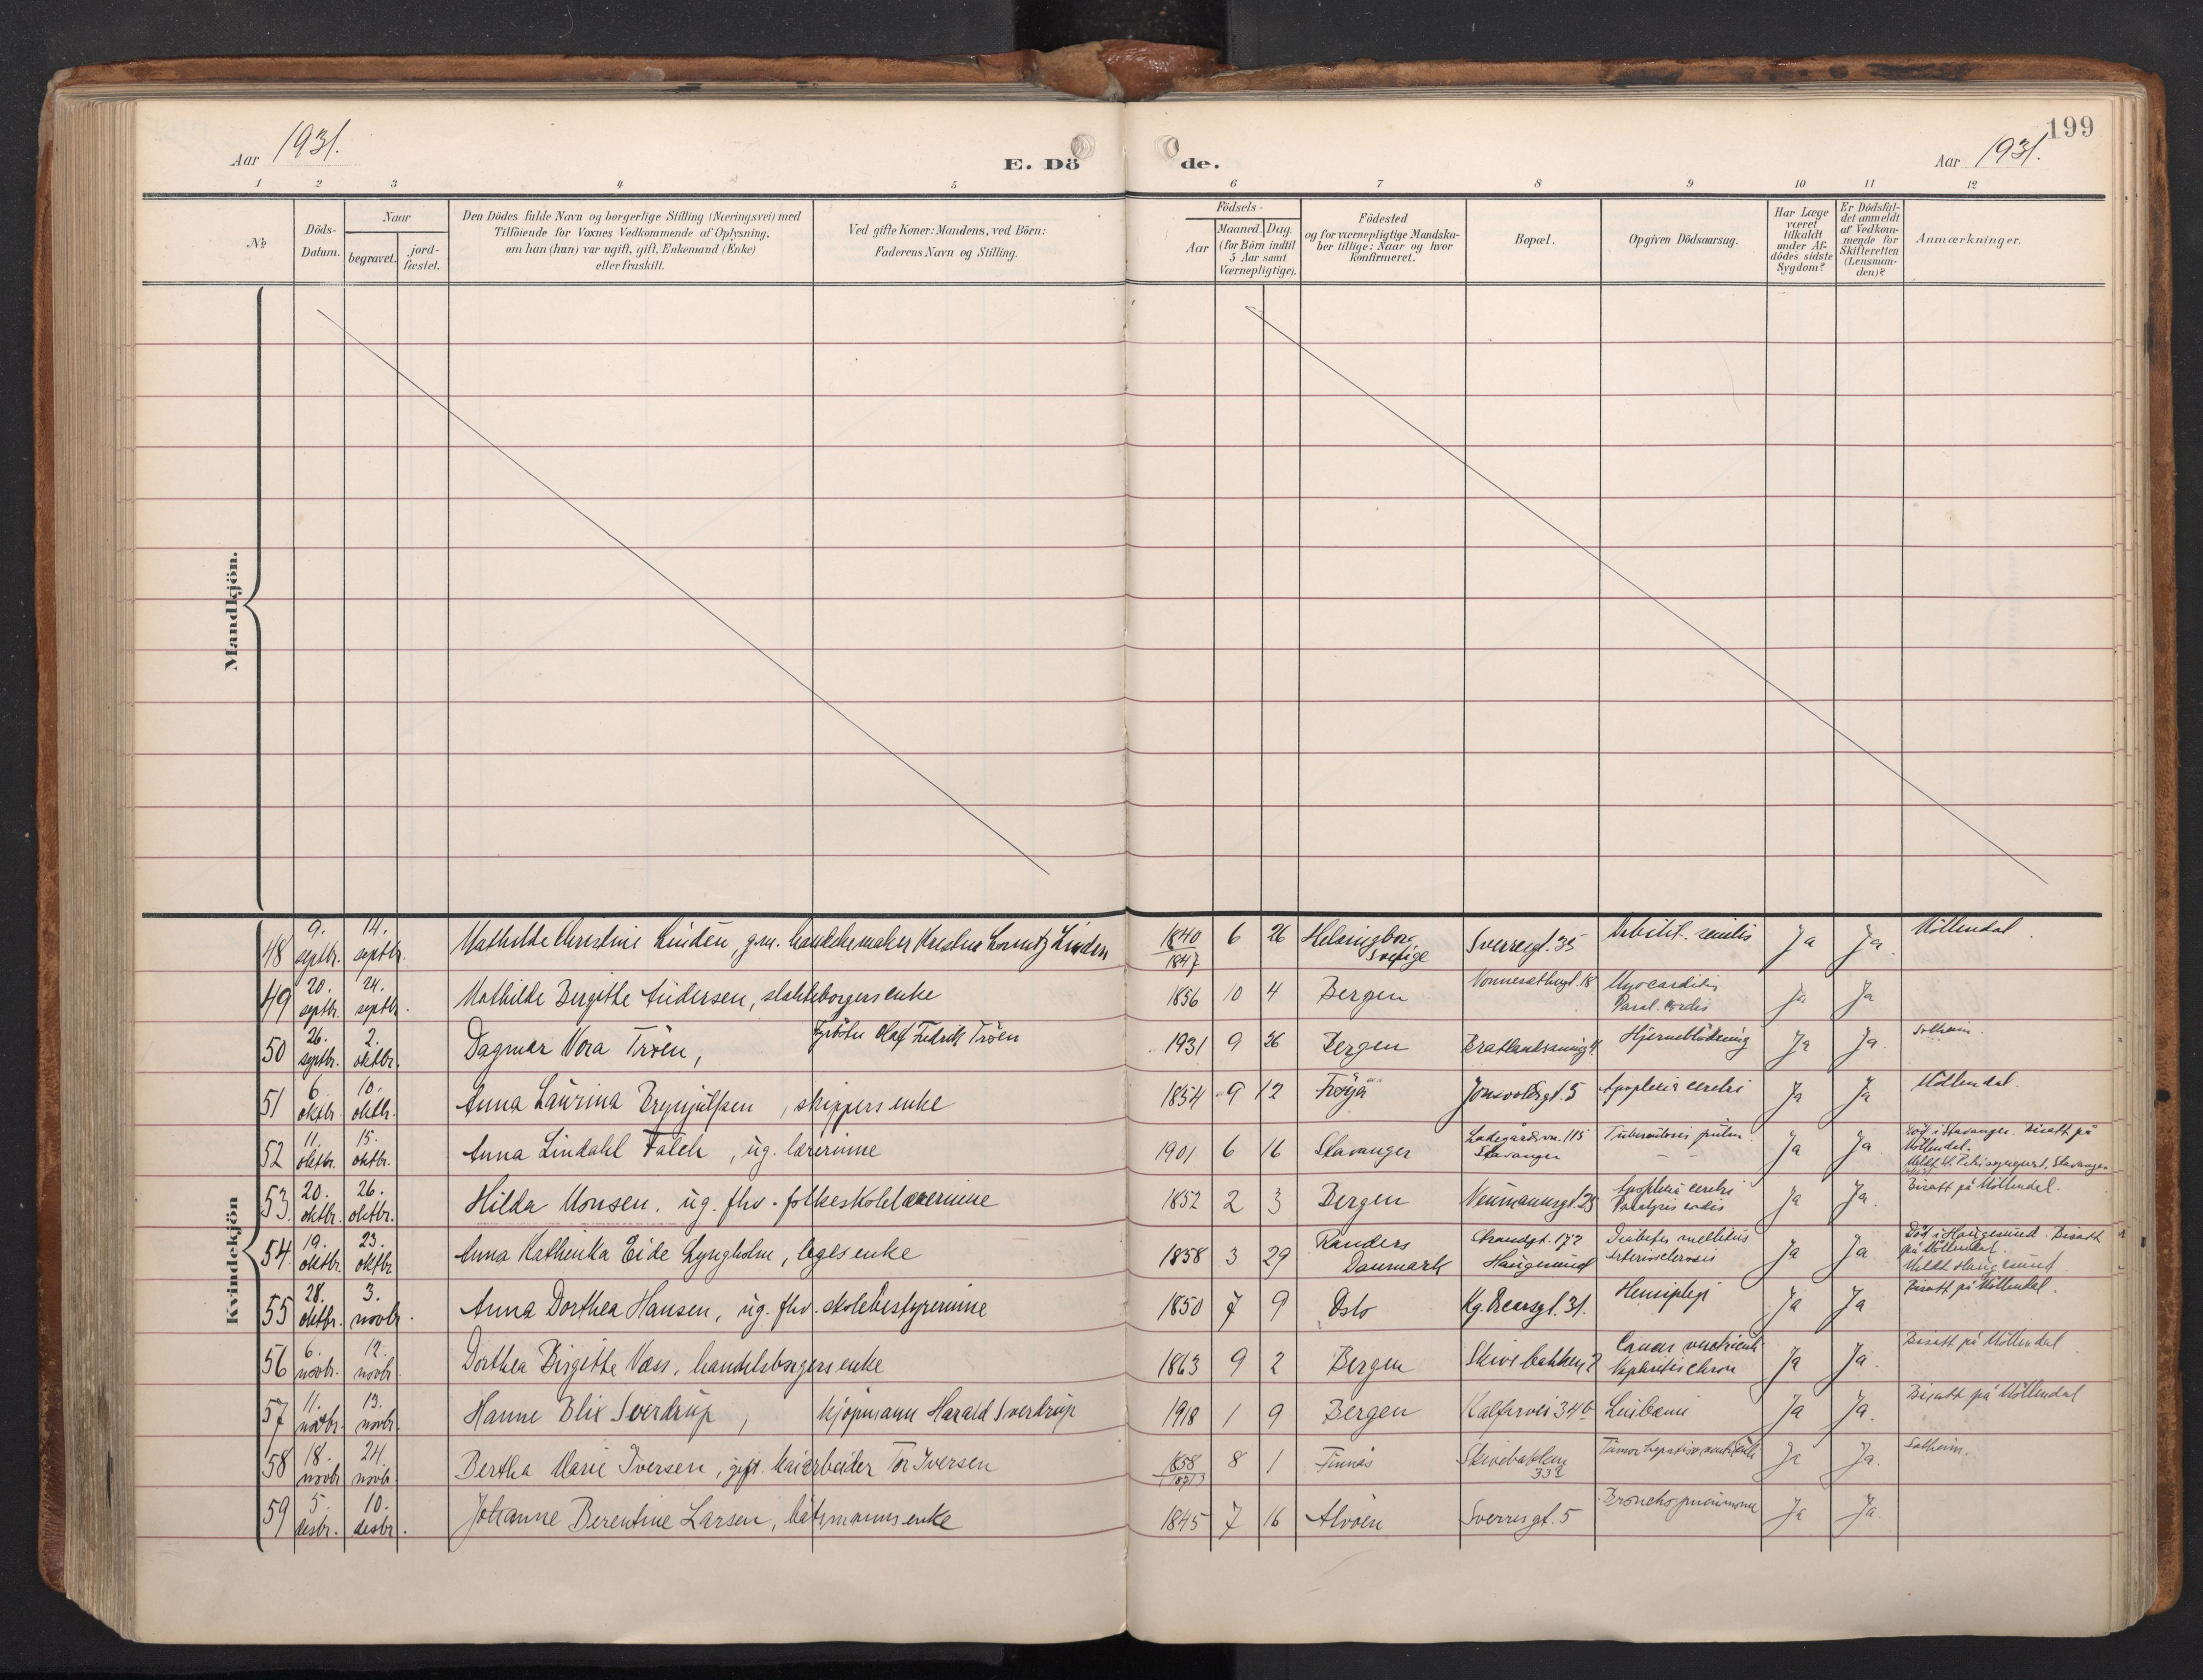 199
Aar 1931.
E. Dö
de.
Aar 1931.
1 2 3 4 5 6 7 8 9 10 11 12
No
Döds-
Datum.
Naar
begravet.
jord-
fæstet.
Den Dödes fulde Navn og borgerlige Stilling (Næringsvei) med
Tilföiende for Voxnes Vedkommende af Oplysning,
om han (hun) var ugift, gift, Enkemand (Enke)
eller fraskilt.
Ved gifte Koner: Mandens, ved Börn:
Faderens Navn og Stilling.
Födsels-
Aar
Maaned. Dag.
(for Börn indtil
5 Aar samt
Værnepligtige).
Födested
og for værnepligtige Mandska-
ber tillige: Naar og hvor
Konfirmeret.
Bopæl.
Opgiven Dödsaarsag.
Har Læge
været
tilkaldt
under Af-
dödes sidste
Sygdom?
Er Dödsfal-
det anmeldt
af Vedkom-
mende for
Skifteretten
(Lensman-
den)?
Anmærkninger.
Mandkjön.
Kvindekjön
48 9. septbr. 14. septbr. Mathilde Christine Lindén, g.m. handskemaker Linden 1840 1847 6 26 Helsingborg Sverige Sverresgt. 35 senilis Ja Ja. Möllendal.
49 20. septbr. 24. septbr. Mathilde Bergithe Andersen, enke 1856 10 4 Bergen Myocarditis Paral. cordis Ja Ja
50 26. septbr. 2. oktbr. Dagmar Vera Tröen, Olaf Fredrik Tröen 1931 9 26 Bergen Hjerneblödning Ja Ja. Solheim.
51 6. oktbr. 10. oktbr. Anna Laurina Brynjulfsen, skippers enke 1854 9 12 Fröyå Jonsvollsgt. 5 Apoplexia cerebri Ja Ja Möllendal.
52 11. oktbr. 15. oktbr. Anna Lindahl Falch, ug. lærerinne 1901 6 16 Stavanger Ladegårdsvn. 115 Stavanger pulm. Ja Ja Död i Stavanger. Bisatt på
Möllendal.
Meldt St. Petri Stavanger
53. 20. oktbr. 26. oktbr. Hilda Monsen. ug. fhv. folkeskolelærerinne 1852 2 3 Bergen Neumannsgt. 25 Apoplexia cerebri Paralysis cordis Ja Ja. Bisatt på Möllendal.
54. 19. oktbr. 23. oktbr Anna Kathinka Eide Lyngholm, leges enke 1858 3 29 Randers Danmark Strandgt. 172 Haugesund Diabetes mellitus Arteriosclerosis Ja Ja Död i Haugesund. Bisatt
på Möllendal.
Meldt Haugesund
55 28. oktbr. 3. novbr. Anna Dorthea Hansen, ug. fhv. skolebestyrerinne 1850 7 9 Oslo Kg. Oscarsgt. 31. Hemiplegi Ja Ja Bisatt på Möllendal.
56 6. novbr. 12. novbr. Dorthea Birgitte Næss, handelsborgers enke 1863 9 2 Bergen Skivebakken 2 Cancer ventriculi Nephritis chron Ja Ja. Bisatt på Möllendal
57 11. novbr. 13. novbr. Hanne Blix Sverdrup, kjöpmann Harald Sverdrup 1918 1 9 Bergen Kalfarvei 34b Leukemi Ja Ja. Bisatt på Möllendal
58 18. novbr 24. novbr. Bertha Marie Iversen, gift. kaiarbeider Tor Iversen 1858 1873 8 1 Finnås Skivebakken 33a Tumor hepatis Ja Ja. Solheim.
59 5. desbr. 10. desbr. Johanne Berentine Larsen, båtsmanns enke 1845 7 16 Alvöen Sverresgt. 5 Bronchopneumoni Ja Ja.